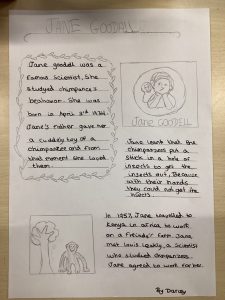 JANE GOODALL
Jane goodell was a
famous scientist. She
studyed chimpanzee's
behavour. She was
born in April 3rd 1934.
Jane's father gave her
a cuddely toy of a
chimpanzee and from
that moment she loved
them.
JANE GOODELL
Jane learnt that the
chimpanzees put a
stick in a hole of
insects to get the
insects out, Because
with their hands
they could not get the
insects.
In 1957, Jane travelled to
Kenya in africa to work
on a friend's farm. Jane
met Louis Leakey, a scientist
who studyed chimpanzees.
Jane agreed to work for him.
By Darcey